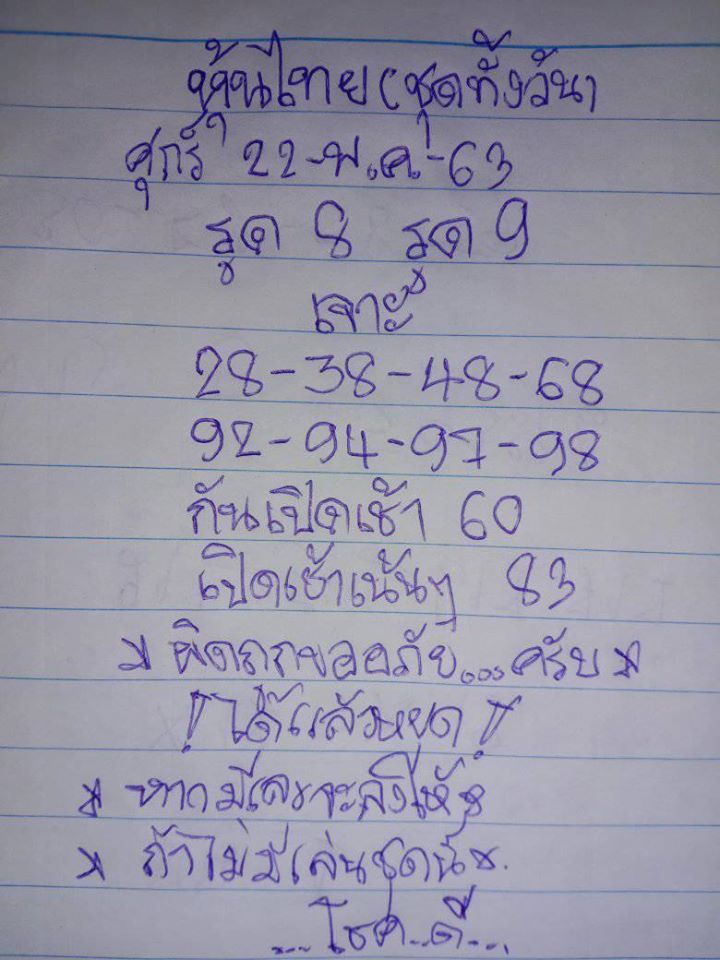 หุ้นไทย (ชุดทั้งวัน)
ศุกร์ 22-พ.ค.-63
รูด 8 รูด 9
เจาะ
28-38-48-68
92-94-97-98
กันเปิดเช้า 60
เปิดเช้าเน้นๆ 83
× ผิดถกขออภัย...ครับ ×
! ได้แล้วหยุด !
× หากมีเลขจะส่งให้
× ถ้าไม่มีเล่นชุดนี้
...โชค..ดี...